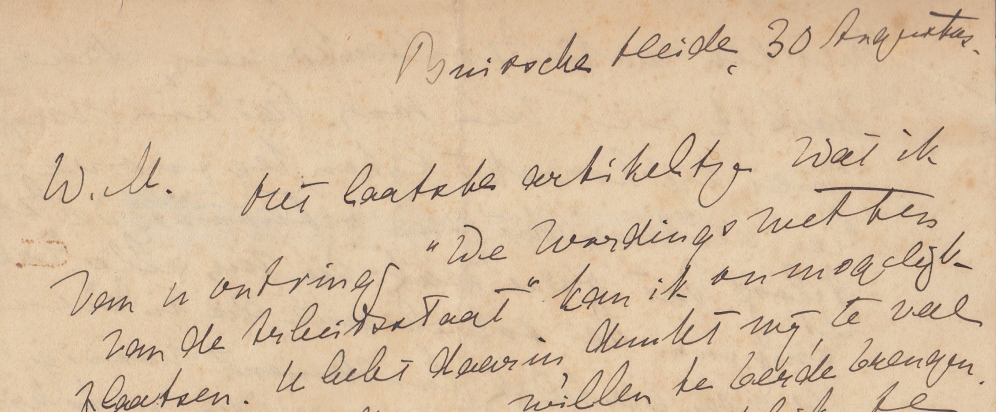 Buissche Heide, 30 Augustus.
W. M. Het laatste artikeltje wat ik
van u ontving "De Wordingswetten
van de Arbeidsstaat" kan ik onmogelijk
plaatsen. U hebt daarin, dunkt mij, te veel
willen te berde brengen.